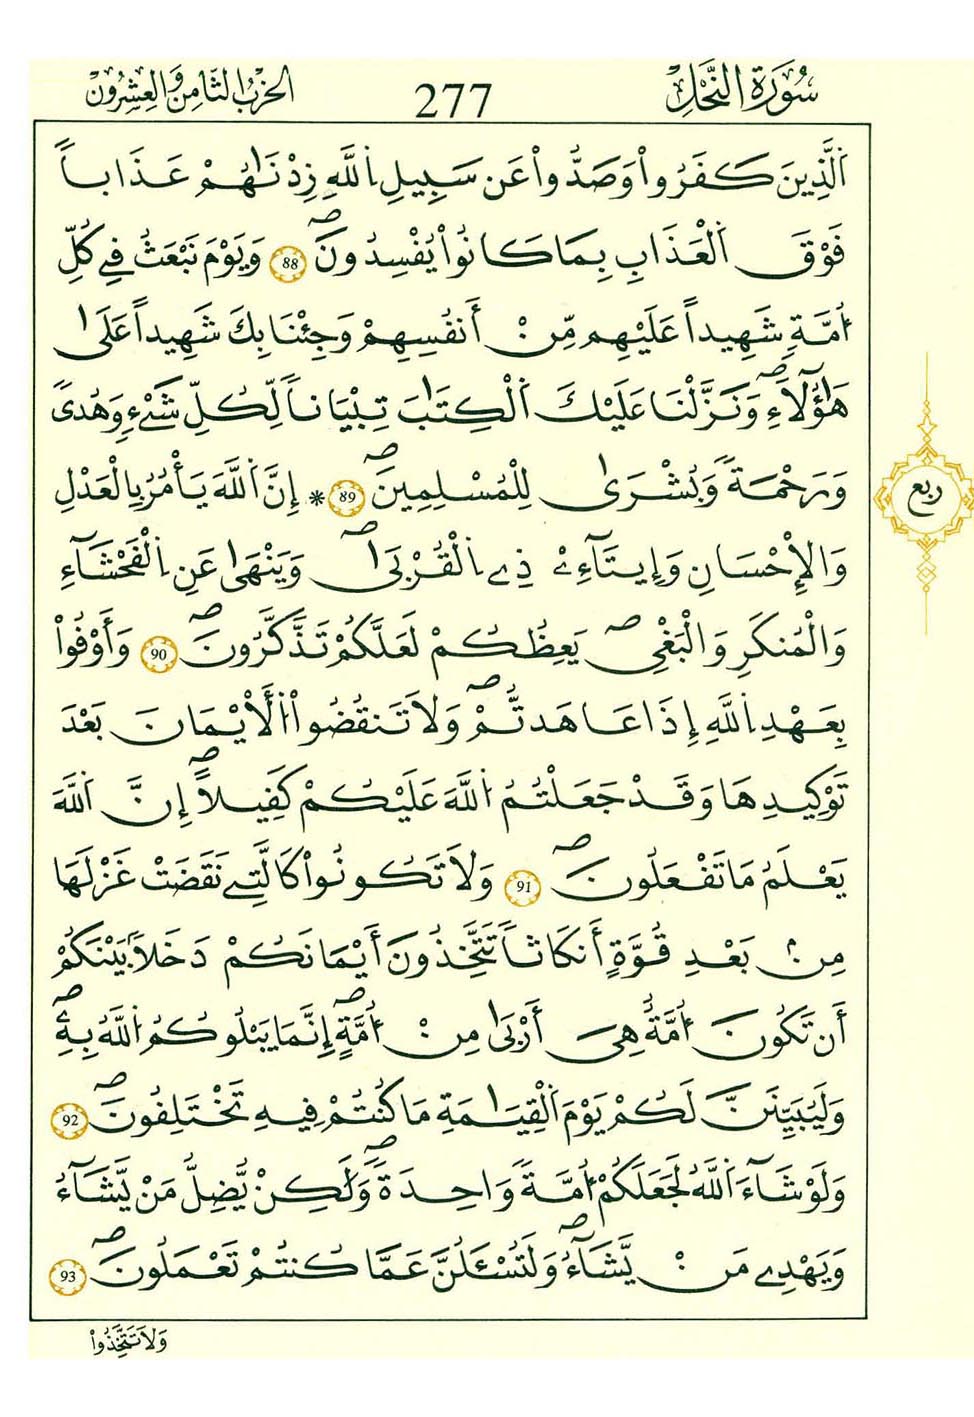 سُورَةُ النَّحْلِ 277 الحِزْبُ الثَّامِنُ وَالعِشْرُونَ
اَ۬لذِينَ كَفَرُواْ وَصَدُّواْ عَن سَبِيلِ اِ۬للَّهِ زِدْنَٰهُمْ عَذَاباً
فَوْقَ اَ۬لْعَذَابِ بِمَا كَانُواْ يُفْسِدُونَۖ 88 وَيَوْمَ نَبْعَثُ فِے كُلِّ
أُمَّةٖ شَهِيداً عَلَيْهِم مِّنَ اَنفُسِهِمْ وَجِئْنَا بِكَ شَهِيداً عَلَيٰ
هَٰٓؤُلَآءِۖ وَنَزَّلْنَا عَلَيْكَ اَ۬لْكِتَٰبَ تِبْيَٰناً لِّكُلِّ شَےْءٖ وَهُديٗ
وَرَحْمَةٗ وَبُشْر۪يٰ لِلْمُسْلِمِينَۖ 89 * إِنَّ اَ۬للَّهَ يَأْمُرُ بِالْعَدْلِ
وَالْإِحْسَٰنِ وَإِيتَآءِےْ ذِے اِ۬لْقُرْب۪يٰۖ وَيَنْه۪يٰ عَنِ اِ۬لْفَحْشَآءِ
وَالْمُنكَرِ وَالْبَغْيِۖ يَعِظُكُمْ لَعَلَّكُمْ تَذَّكَّرُونَۖ 90 وَأَوْفُواْ
بِعَهْدِ اِ۬للَّهِ إِذَا عَٰهَدتُّمْۖ وَلَا تَنقُضُواْ اُ۬لْأَيْمَٰنَ بَعْدَ
تَوْكِيدِهَا وَقَدْ جَعَلْتُمُ اُ۬للَّهَ عَلَيْكُمْ كَفِيلاًۖ إِنَّ اَ۬للَّهَ
يَعْلَمُ مَا تَفْعَلُونَۖ 91 وَلَا تَكُونُواْ كَالتِے نَقَضَتْ غَزْلَهَا
مِنۢ بَعْدِ قُوَّةٍ اَنكَٰثاً تَتَّخِذُونَ أَيْمَٰنَكُمْ دَخَلاَۢ بَيْنَكُمُۥٓ
أَن تَكُونَ أُمَّةٌ هِيَ أَرْب۪يٰ مِنُ ا۟مَّةٍۖ اِنَّمَا يَبْلُوكُمُ اُ۬للَّهُ بِهِۦۖ
وَلَيُبَيِّنَنَّ لَكُمْ يَوْمَ اَ۬لْقِيَٰمَةِ مَا كُنتُمْ فِيهِ تَخْتَلِفُونَۖ 92
وَلَوْ شَآءَ اَ۬للَّهُ لَجَعَلَكُمُۥٓ أُمَّةٗ وَٰحِدَةٗۖ وَلَٰكِنْ يُّضِلُّ مَنْ يَّشَآءُ
وَيَهْدِے مَنْ يَّشَآءُۖ وَلَتُسْـَٔلُنَّ عَمَّا كُنتُمْ تَعْمَلُونَۖ 93
وَلَا تَتَّخِذُواْ
ربع